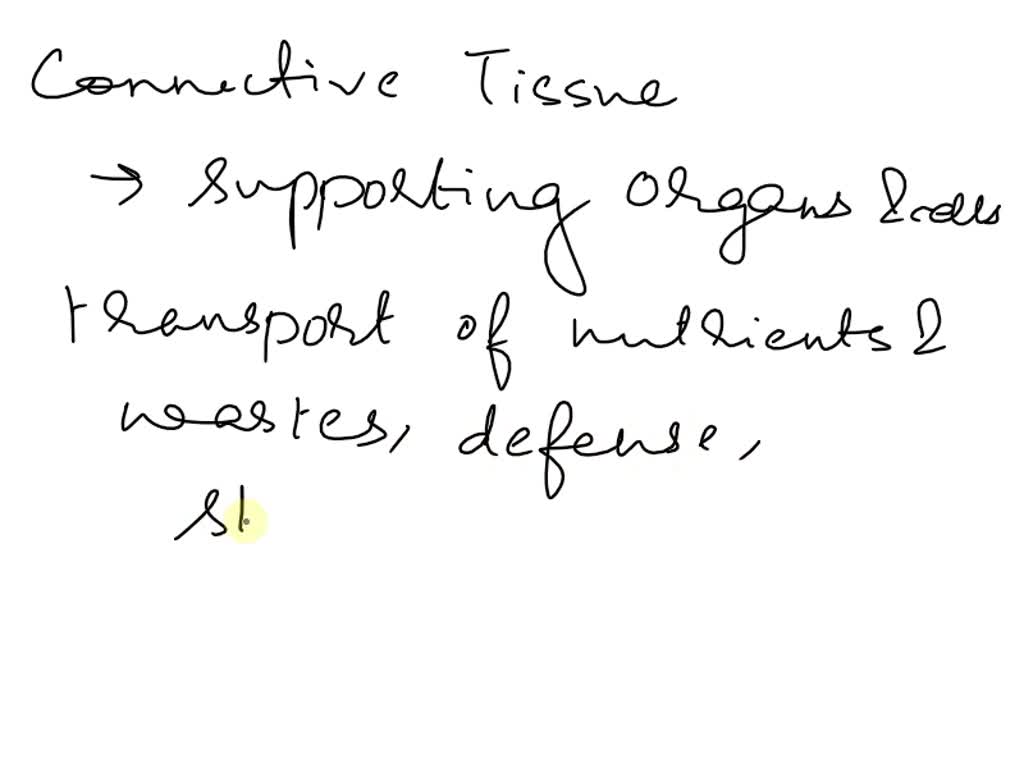 Connective Tissue
→ supporting organs & cells
transport of nutrients &
wastes, defense,
st